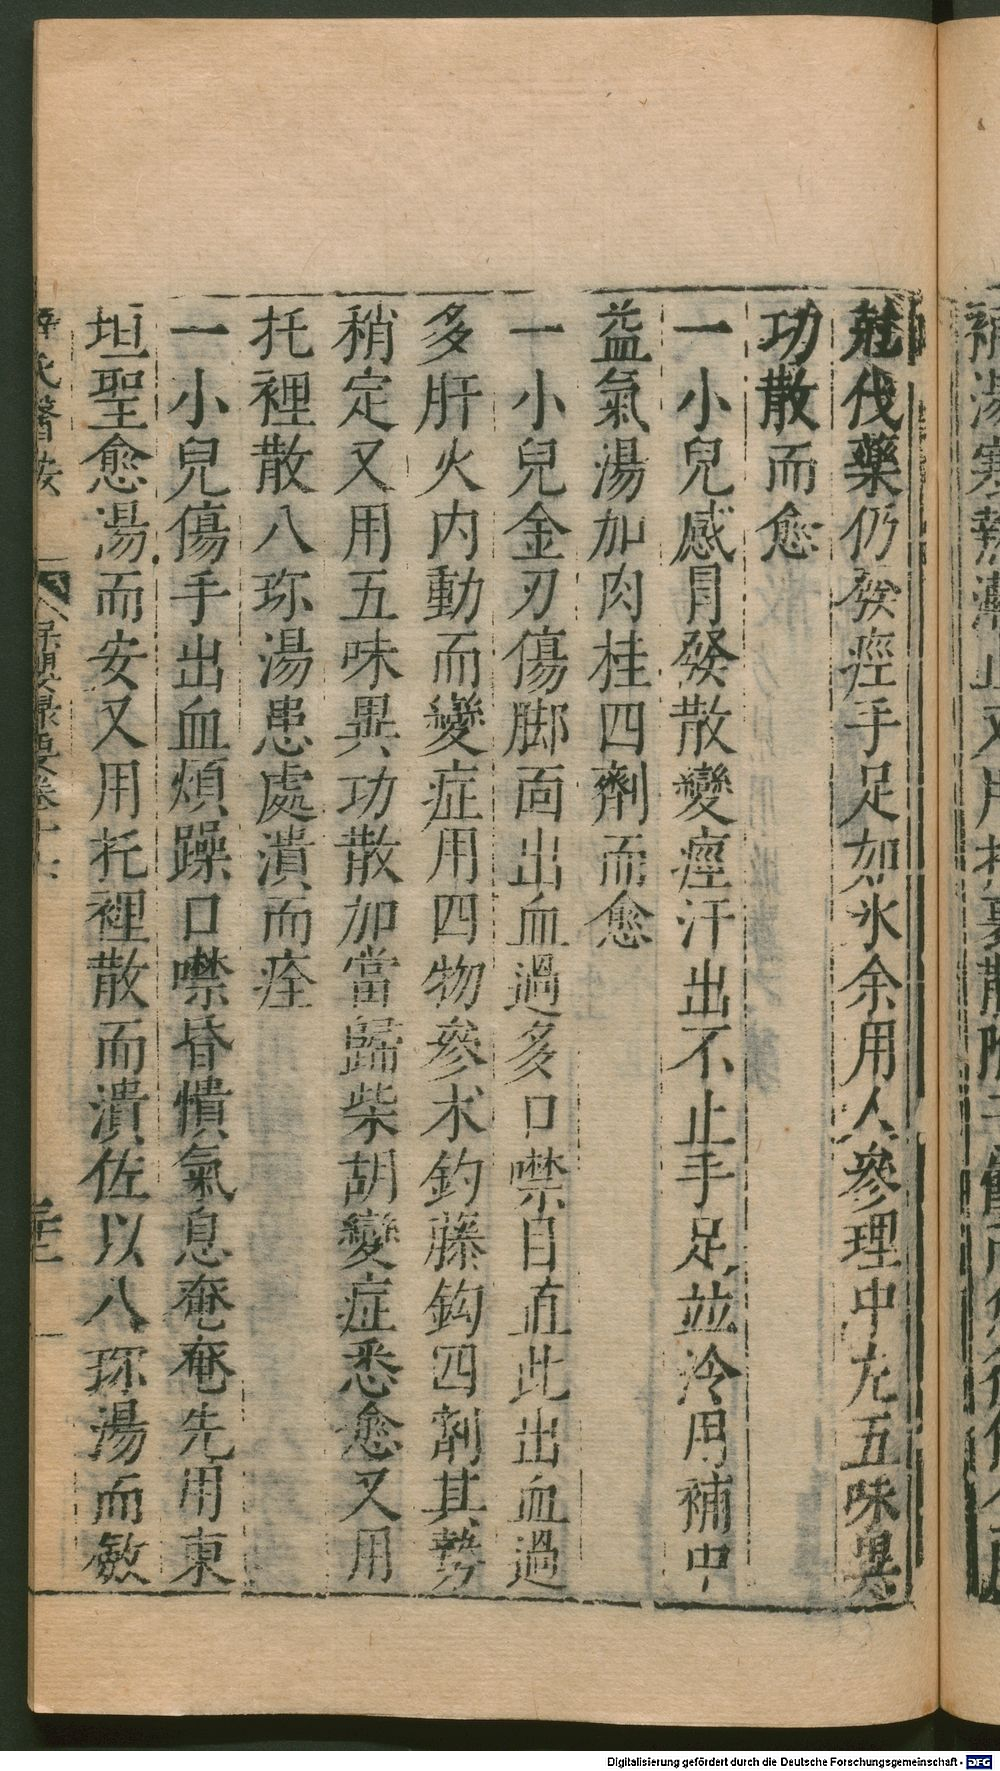 尅伐藥仍發痙手足如氷余用人參理中丸五味異
功散而愈
一小兒感冐發散變痙汗出不止手足並冷用補中
益氣湯加肉桂四劑而愈
一小兒金刃傷脚面出血過多口噤目直此出血過
多肝火內動而變症用四物參朮釣藤鈎四劑其勢
稍定又用五味異功散加當歸柴胡變症悉愈又用
托裡散八珎湯患處潰而痊
一小兒傷手出血煩躁口噤昏憒氣息奄奄先用東
垣聖愈湯而安又用托裡散而潰佐以八珎湯而斂
薛氏醫按
保嬰撮要卷十六
Digitalisierung gefördert durch die Deutsche Forschungsgemeinschaft - DFG